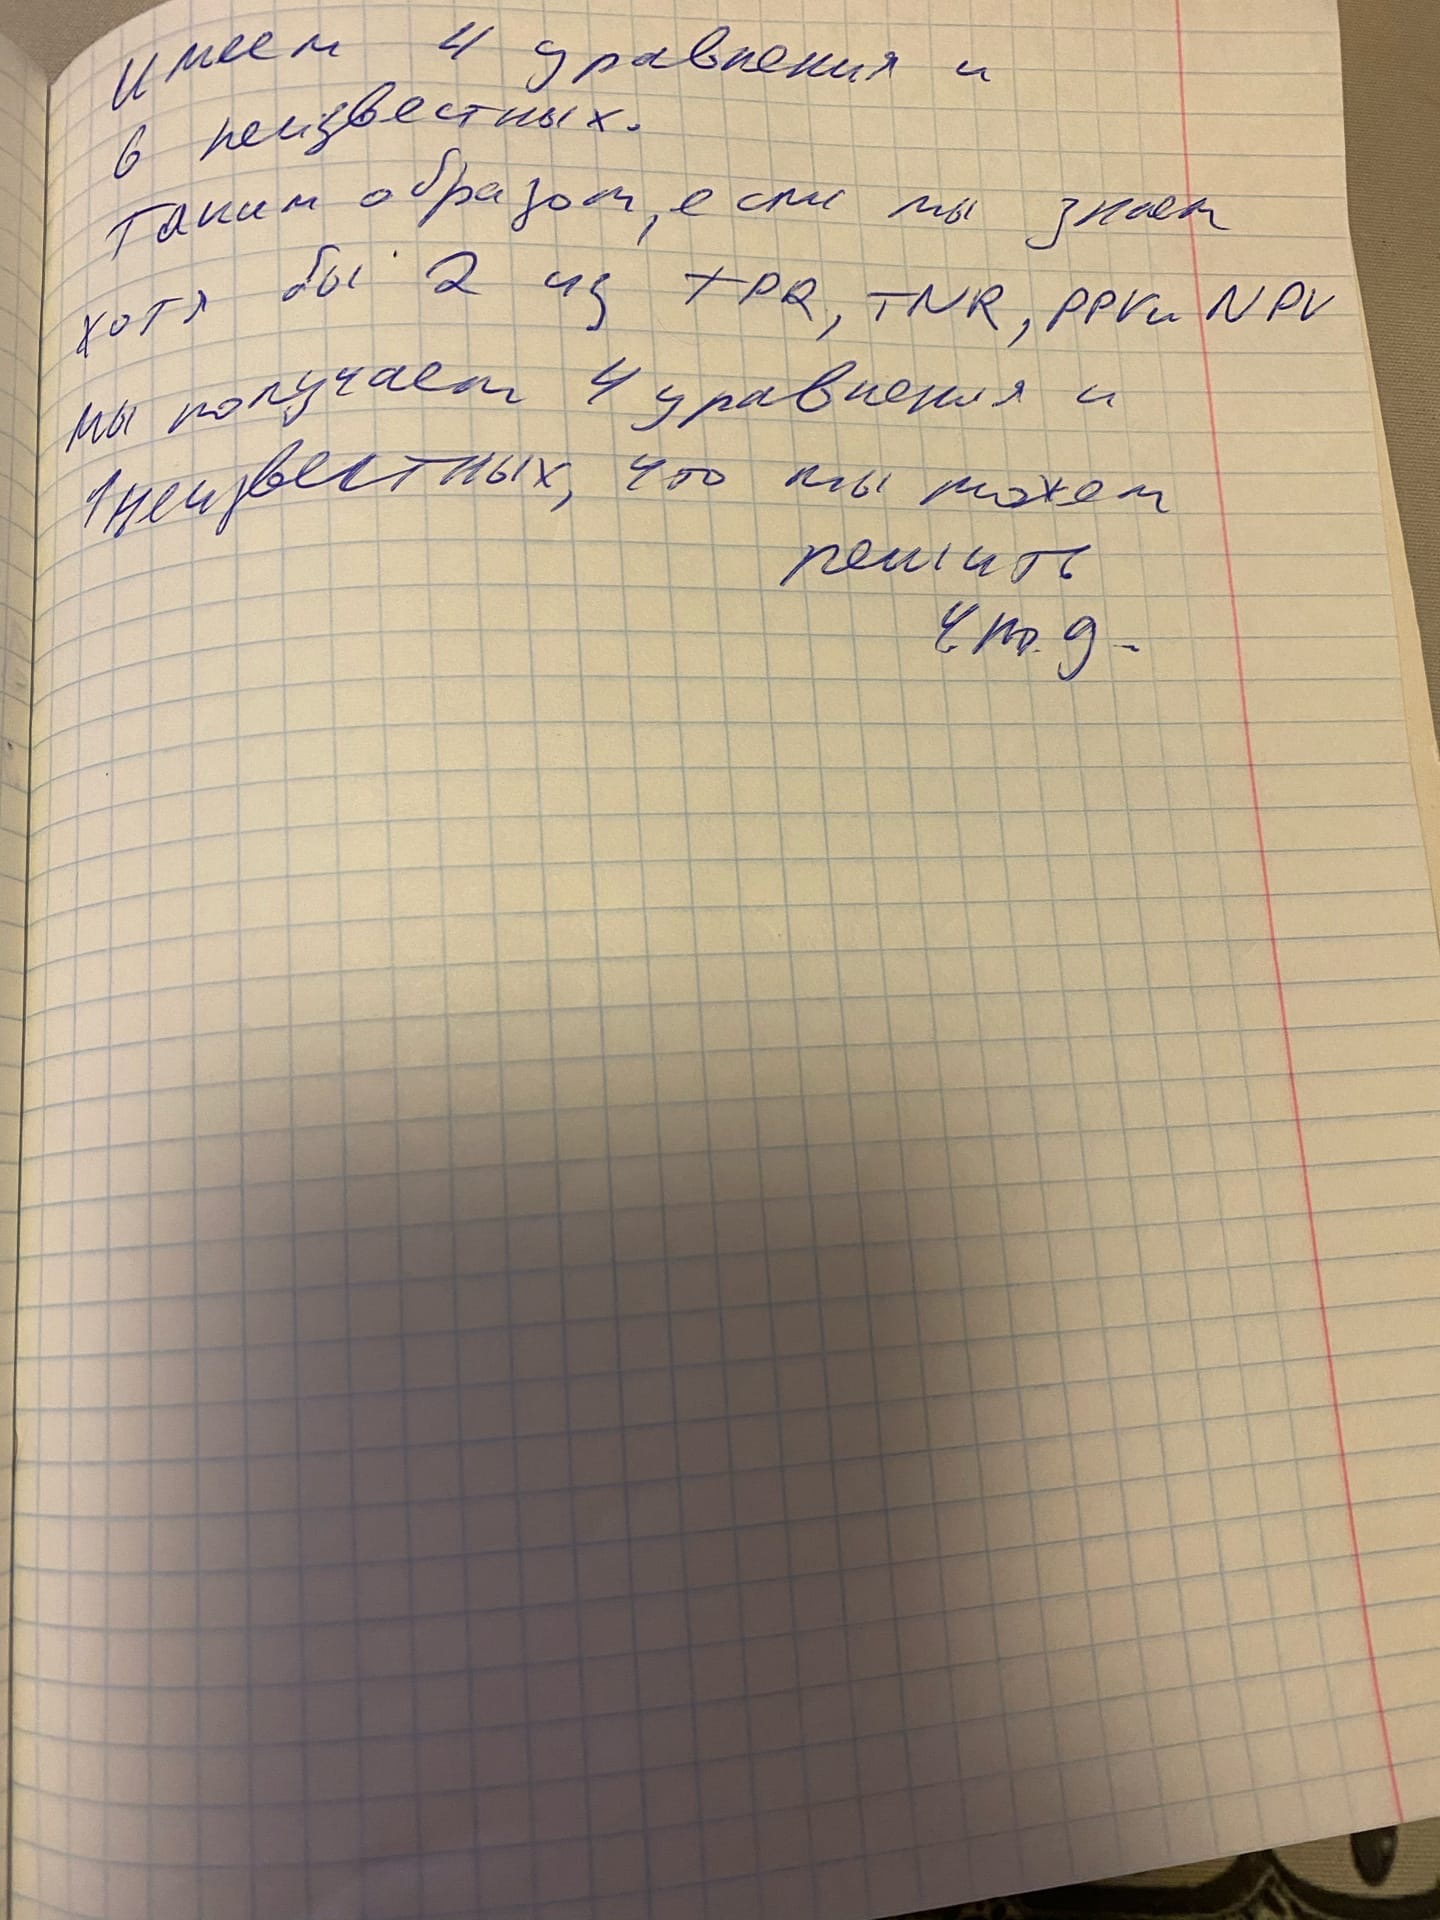 Имеем 4 уравнения и
6 неизвестных.
Таким образом, если мы знаем
хотя бы 2 из TPR, TNR, PPV и NPV
мы получаем 4 уравнения и
4 неизвестных, что мы можем
решить
ч.т.д.